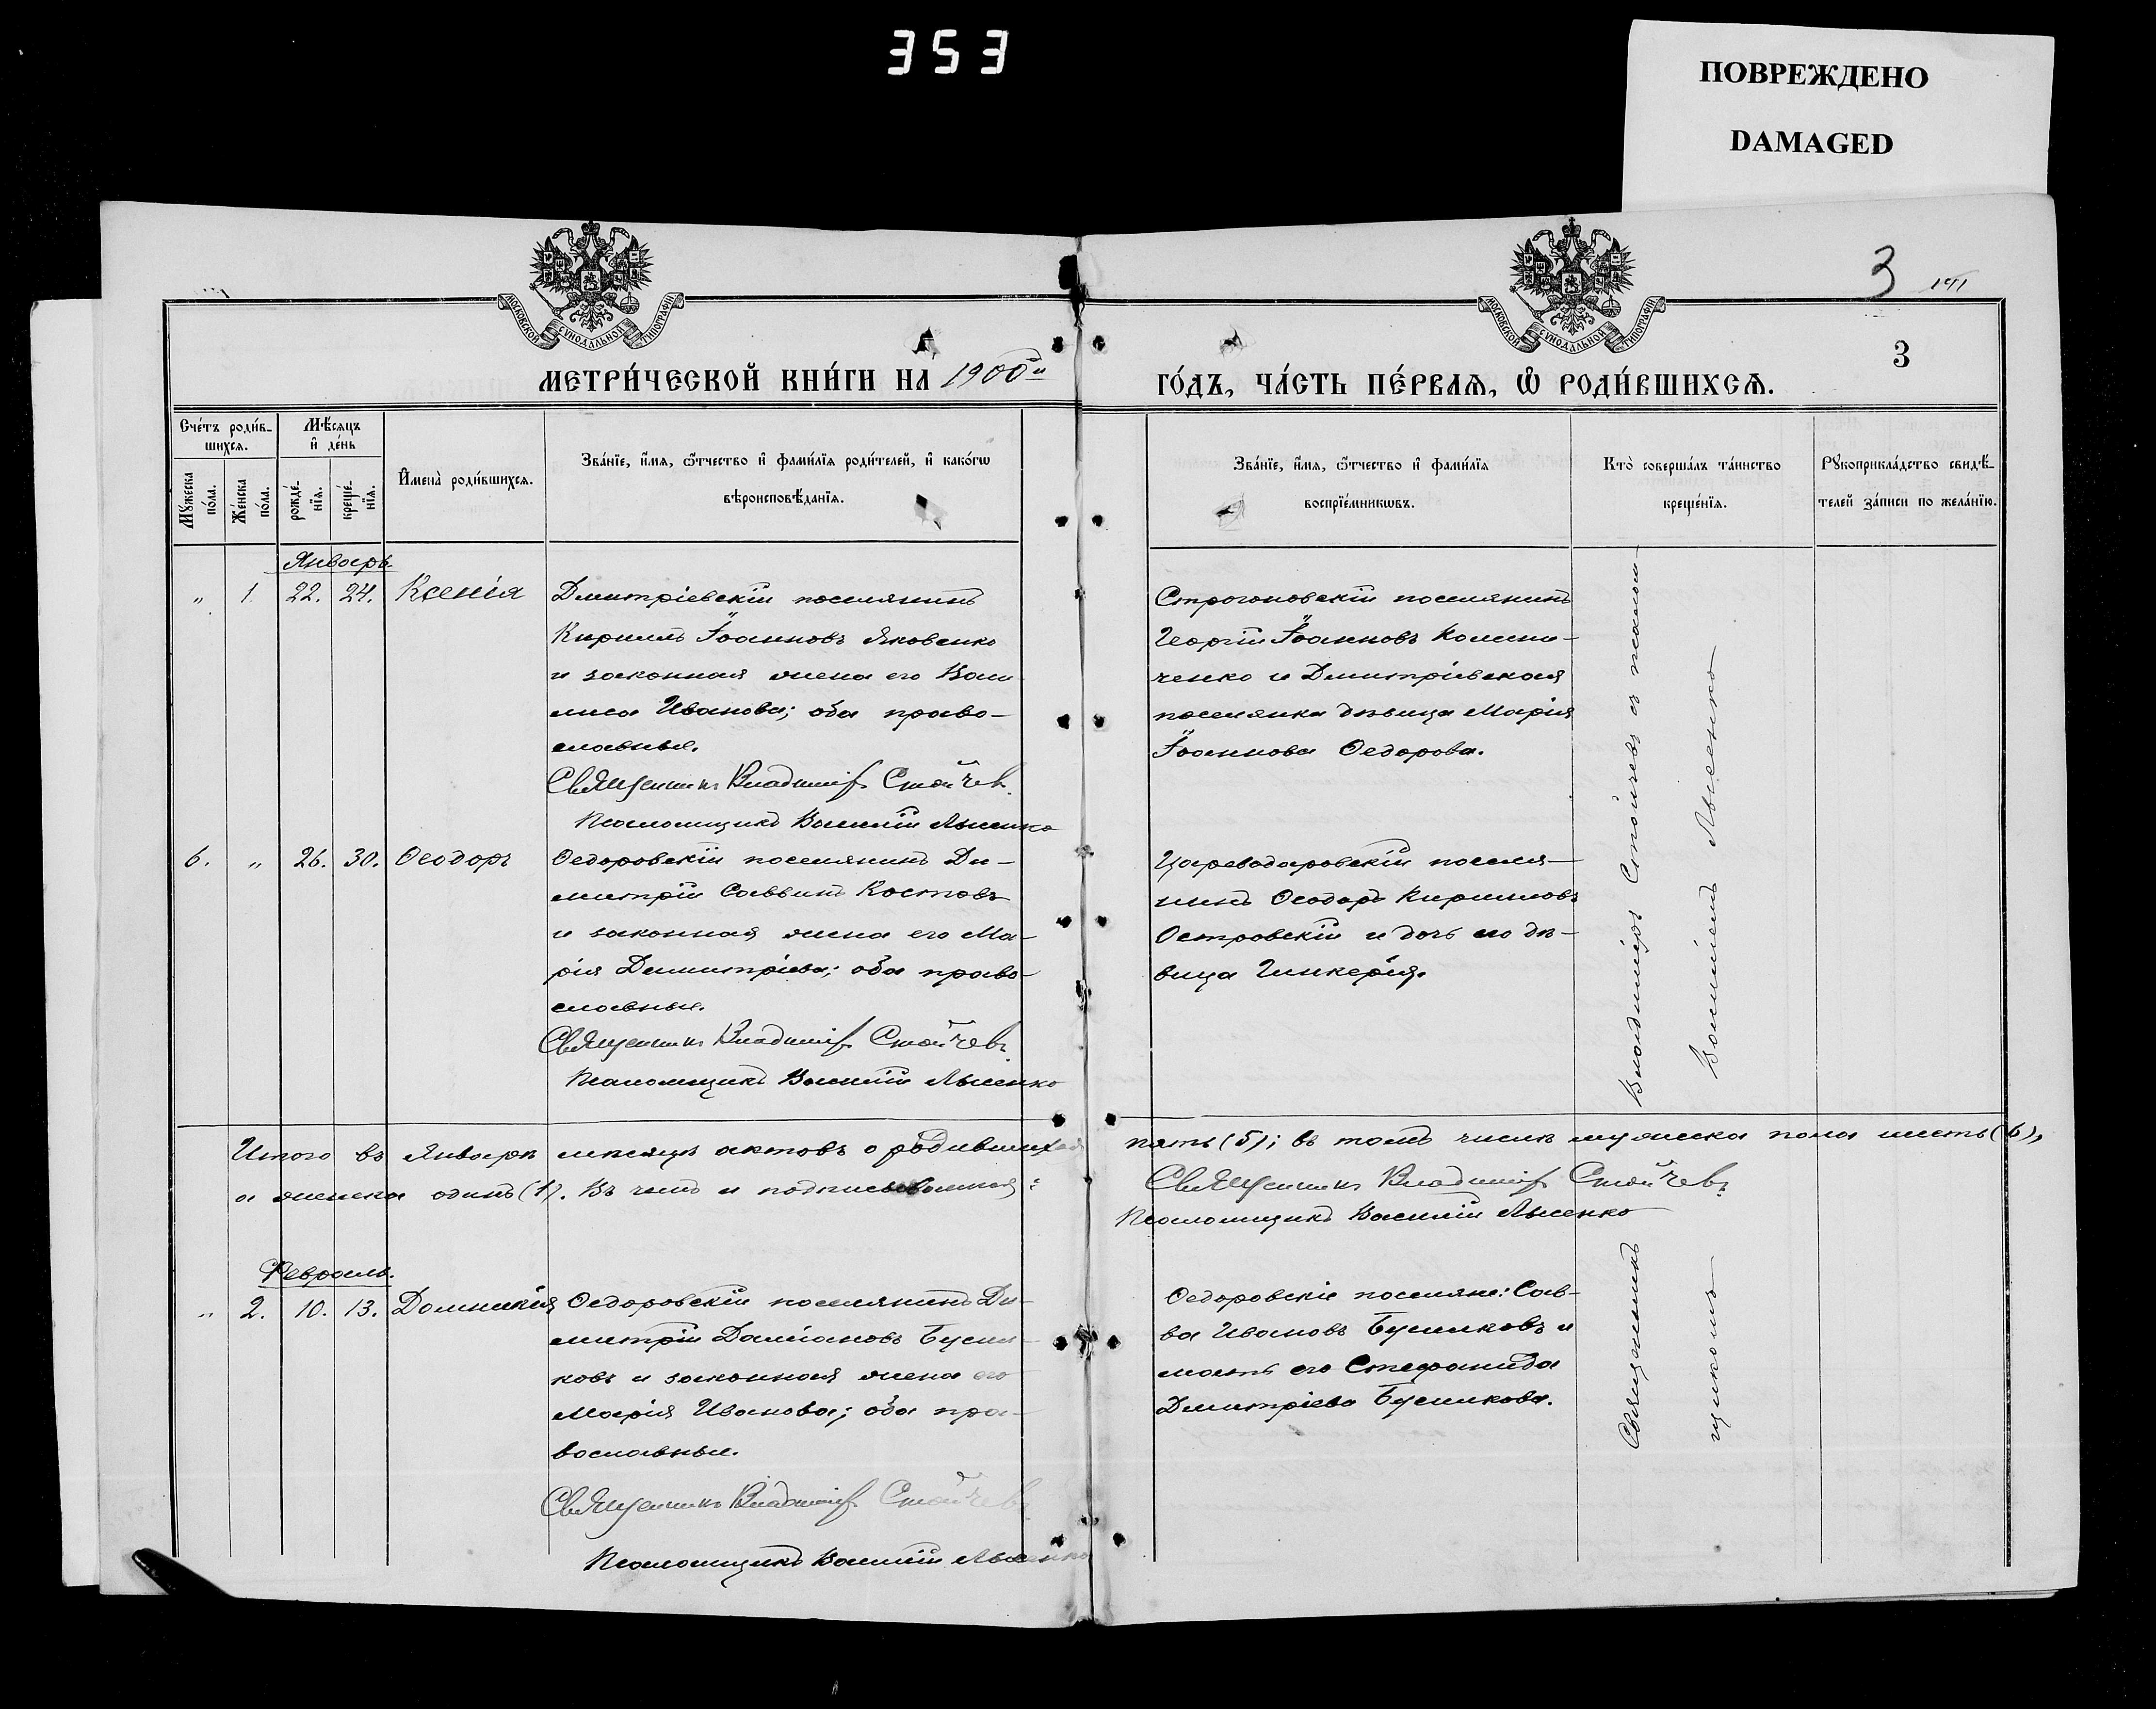 353
ПОВРЕЖДЕНО
DAMAGED
МОСКОВСКОЙ СѴНОДАЛЬНОЙ ТИПОГРАФІИ
МОСКОВСКОЙ СѴНОДАЛЬНОЙ ТИПОГРАФІИ
3
3
МЕТРИ́ЧЕСКОЙ КНИ́ГИ НА 1900й
ГО́ДЪ, ЧА́СТЬ ПЕ́РВАЯ, Ѡ РОДИ́ВШИХСЯ.
Сче́тъ роди́в-
шихся.
Мѣсяцъ
и де́нь
Мꙋжеска
по́ла.
Же́нска
по́ла.
рожде́-
нїя.
креще́-
нїя.
Имена̀ роди́вшихся.
Зва́нїе, и́мя, ѻ́тчество и фами́лїя роди́телей, и како́гѡ
вѣроисповѣ́данїя.
Зва́нїе, и́мя, ѻ́тчество и фами́лїя
воспрїе́мникѡвъ.
Кто̀ соверша́лъ та́инство
креще́нїя.
Рꙋкоприкла́дство свидѣ́-
телей за́писи по жела́нїю.
Январь.
„ 1. 22. 24. Ксенія
Дмитріевскій поселянинъ
Кириллъ Іоанновъ Яковенко
и законная жена его Вас
лиса Иванова; оба право-
славные.
Священникъ Владиміръ Стойчевъ.
Псаломщикъ Василій Лысенко
Строгоновскій поселянинъ
Георгій Іоанновъ Коломи-
ченко и Дмитріевская
поселянка дѣвица Марія
Іоаннова Ѳедорова.
6. „ 26. 30. Ѳеодоръ
Ѳедоровскій поселянинъ Ди-
митрій Саввинъ Костовъ
и законная жена его Ма-
рія Димитріева; оба право-
славные.
Священникъ Владиміръ Стойчевъ.
Псаломщикъ Василій Лысенко
Цареводаровскій поселя-
нинъ Ѳеодоръ Кирилловъ
Островскій и дочь его дѣ-
вица Гликерія.
Итого въ Январѣ мѣсяцѣ актовъ о родившихся
пять (5); въ томъ числѣ мужеска пола шесть (6),
а женска одинъ (1). Въ чемъ и подписываемся:
Священникъ Владиміръ Стойчевъ.
Псаломщикъ Василій Лысенко
Февраль.
„ 2. 10. 13. Домникія
Ѳедоровскій поселянинъ Ди-
митрій Даміановъ Бусли-
ковъ и законная жена его
Марія Иванова; оба пра-
вославные.
Священникъ Владиміръ Стойчев
Псаломщикъ Василій Лысенко
Ѳедоровскіе поселяне: Сав-
ва Ивановъ Бусликовъ и
мать его Стефанида
Дмитріева Бусликова.
Священникъ Владиміръ Стойчевъ съ псалом-
щикомъ Василіемъ Лысенко